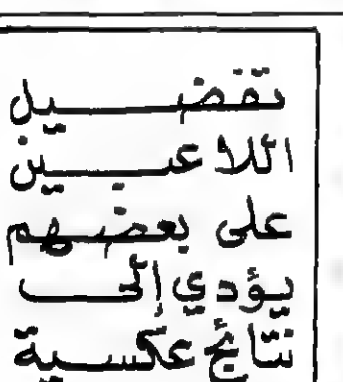 تفضيل
اللاعبين
على بعضهم
يؤدي إلى
نتائج عكسية